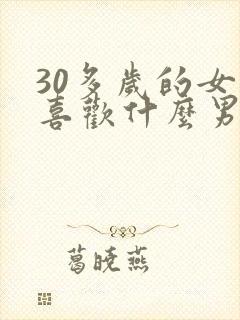 30多歲的女
喜歡什麼男
葛曉燕